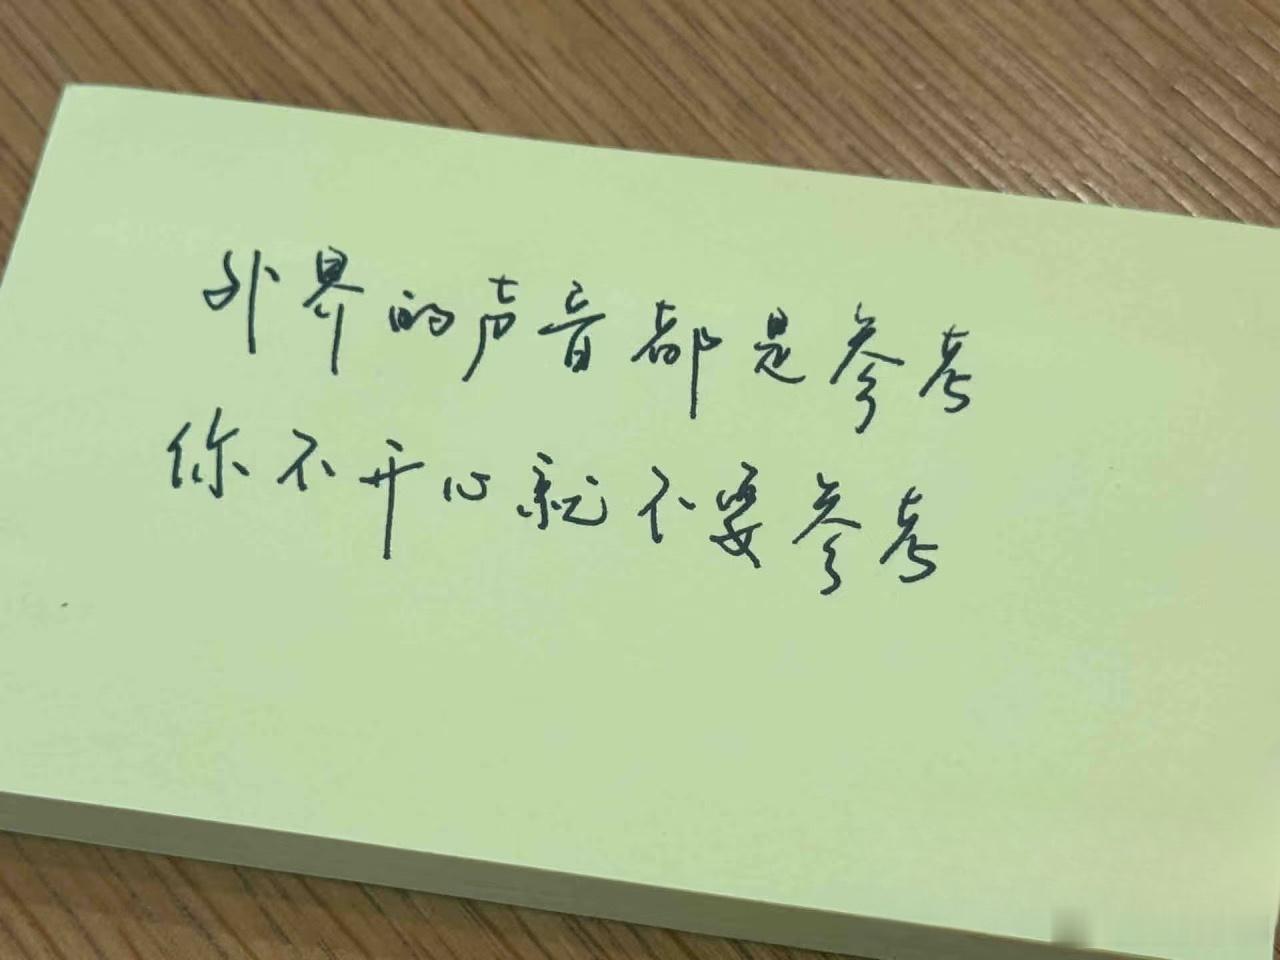 外界的声音都是参考
你不开心就不要参考